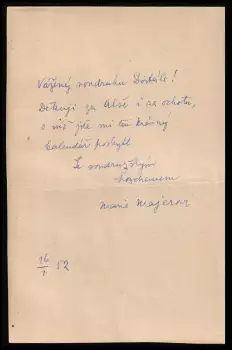 Vážený soudruhu Dostále!
Děkuji za Vaše i za ochotu,
s níž jste mi ten krásný
kalendář poskytl
Se soudružským
pozdravem
Marie Majerová
16/1 52